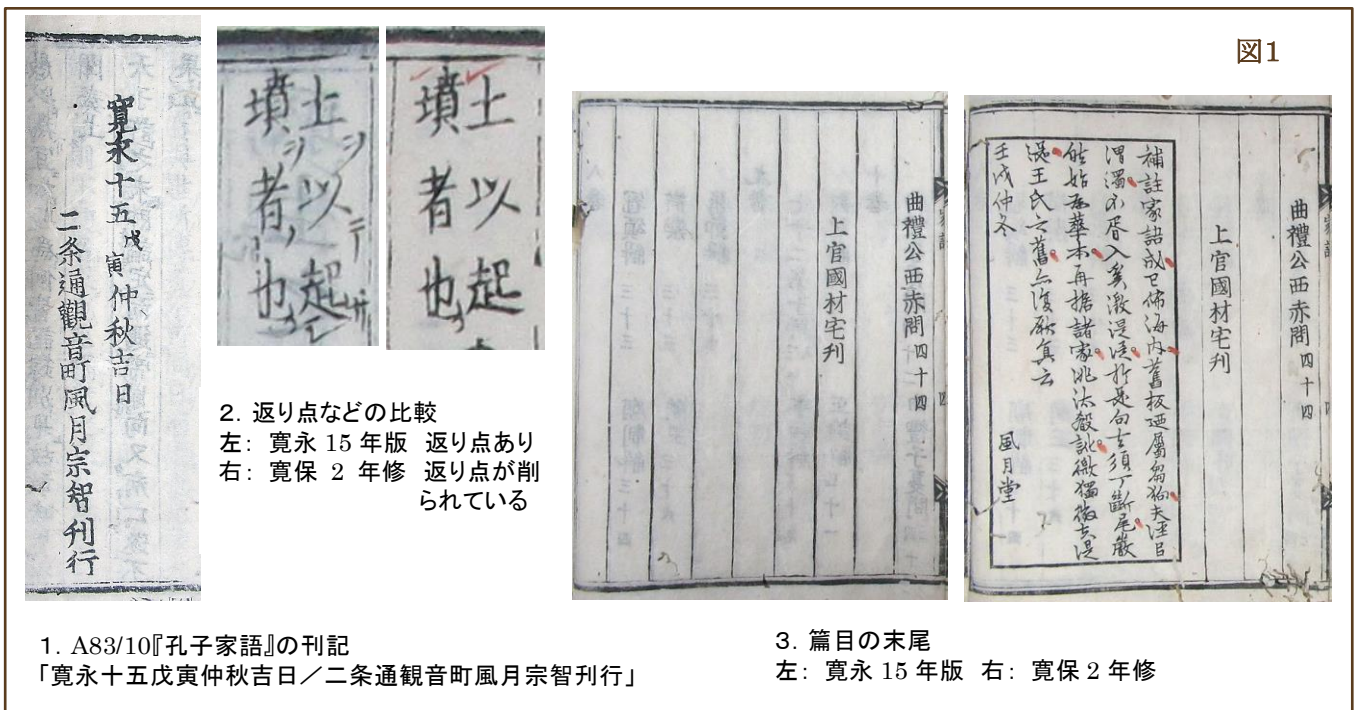 図1
寛永十五戊寅仲秋吉日
二条通觀音町風月宗智刊行
土以起
墳者也
土以起
墳者也
2. 返り点などの比較
左: 寛永 15 年版 返り点あり
右: 寛保 2 年修 返り点が削
られている
曲禮公西赤問四十四
上官國材宅刊
曲禮公西赤問四十四
上官國材宅刊
補註家語成已 海内舊板 屬芻狗夫涇
渭濁不胥入矣激
華本再 諸家
王氏之舊
壬戌仲冬
風月堂
1. A83/10『孔子家語』の刊記
「寛永十五戊寅仲秋吉日／二条通観音町風月宗智刊行」
3. 篇目の末尾
左: 寛永 15 年版 右: 寛保 2 年修